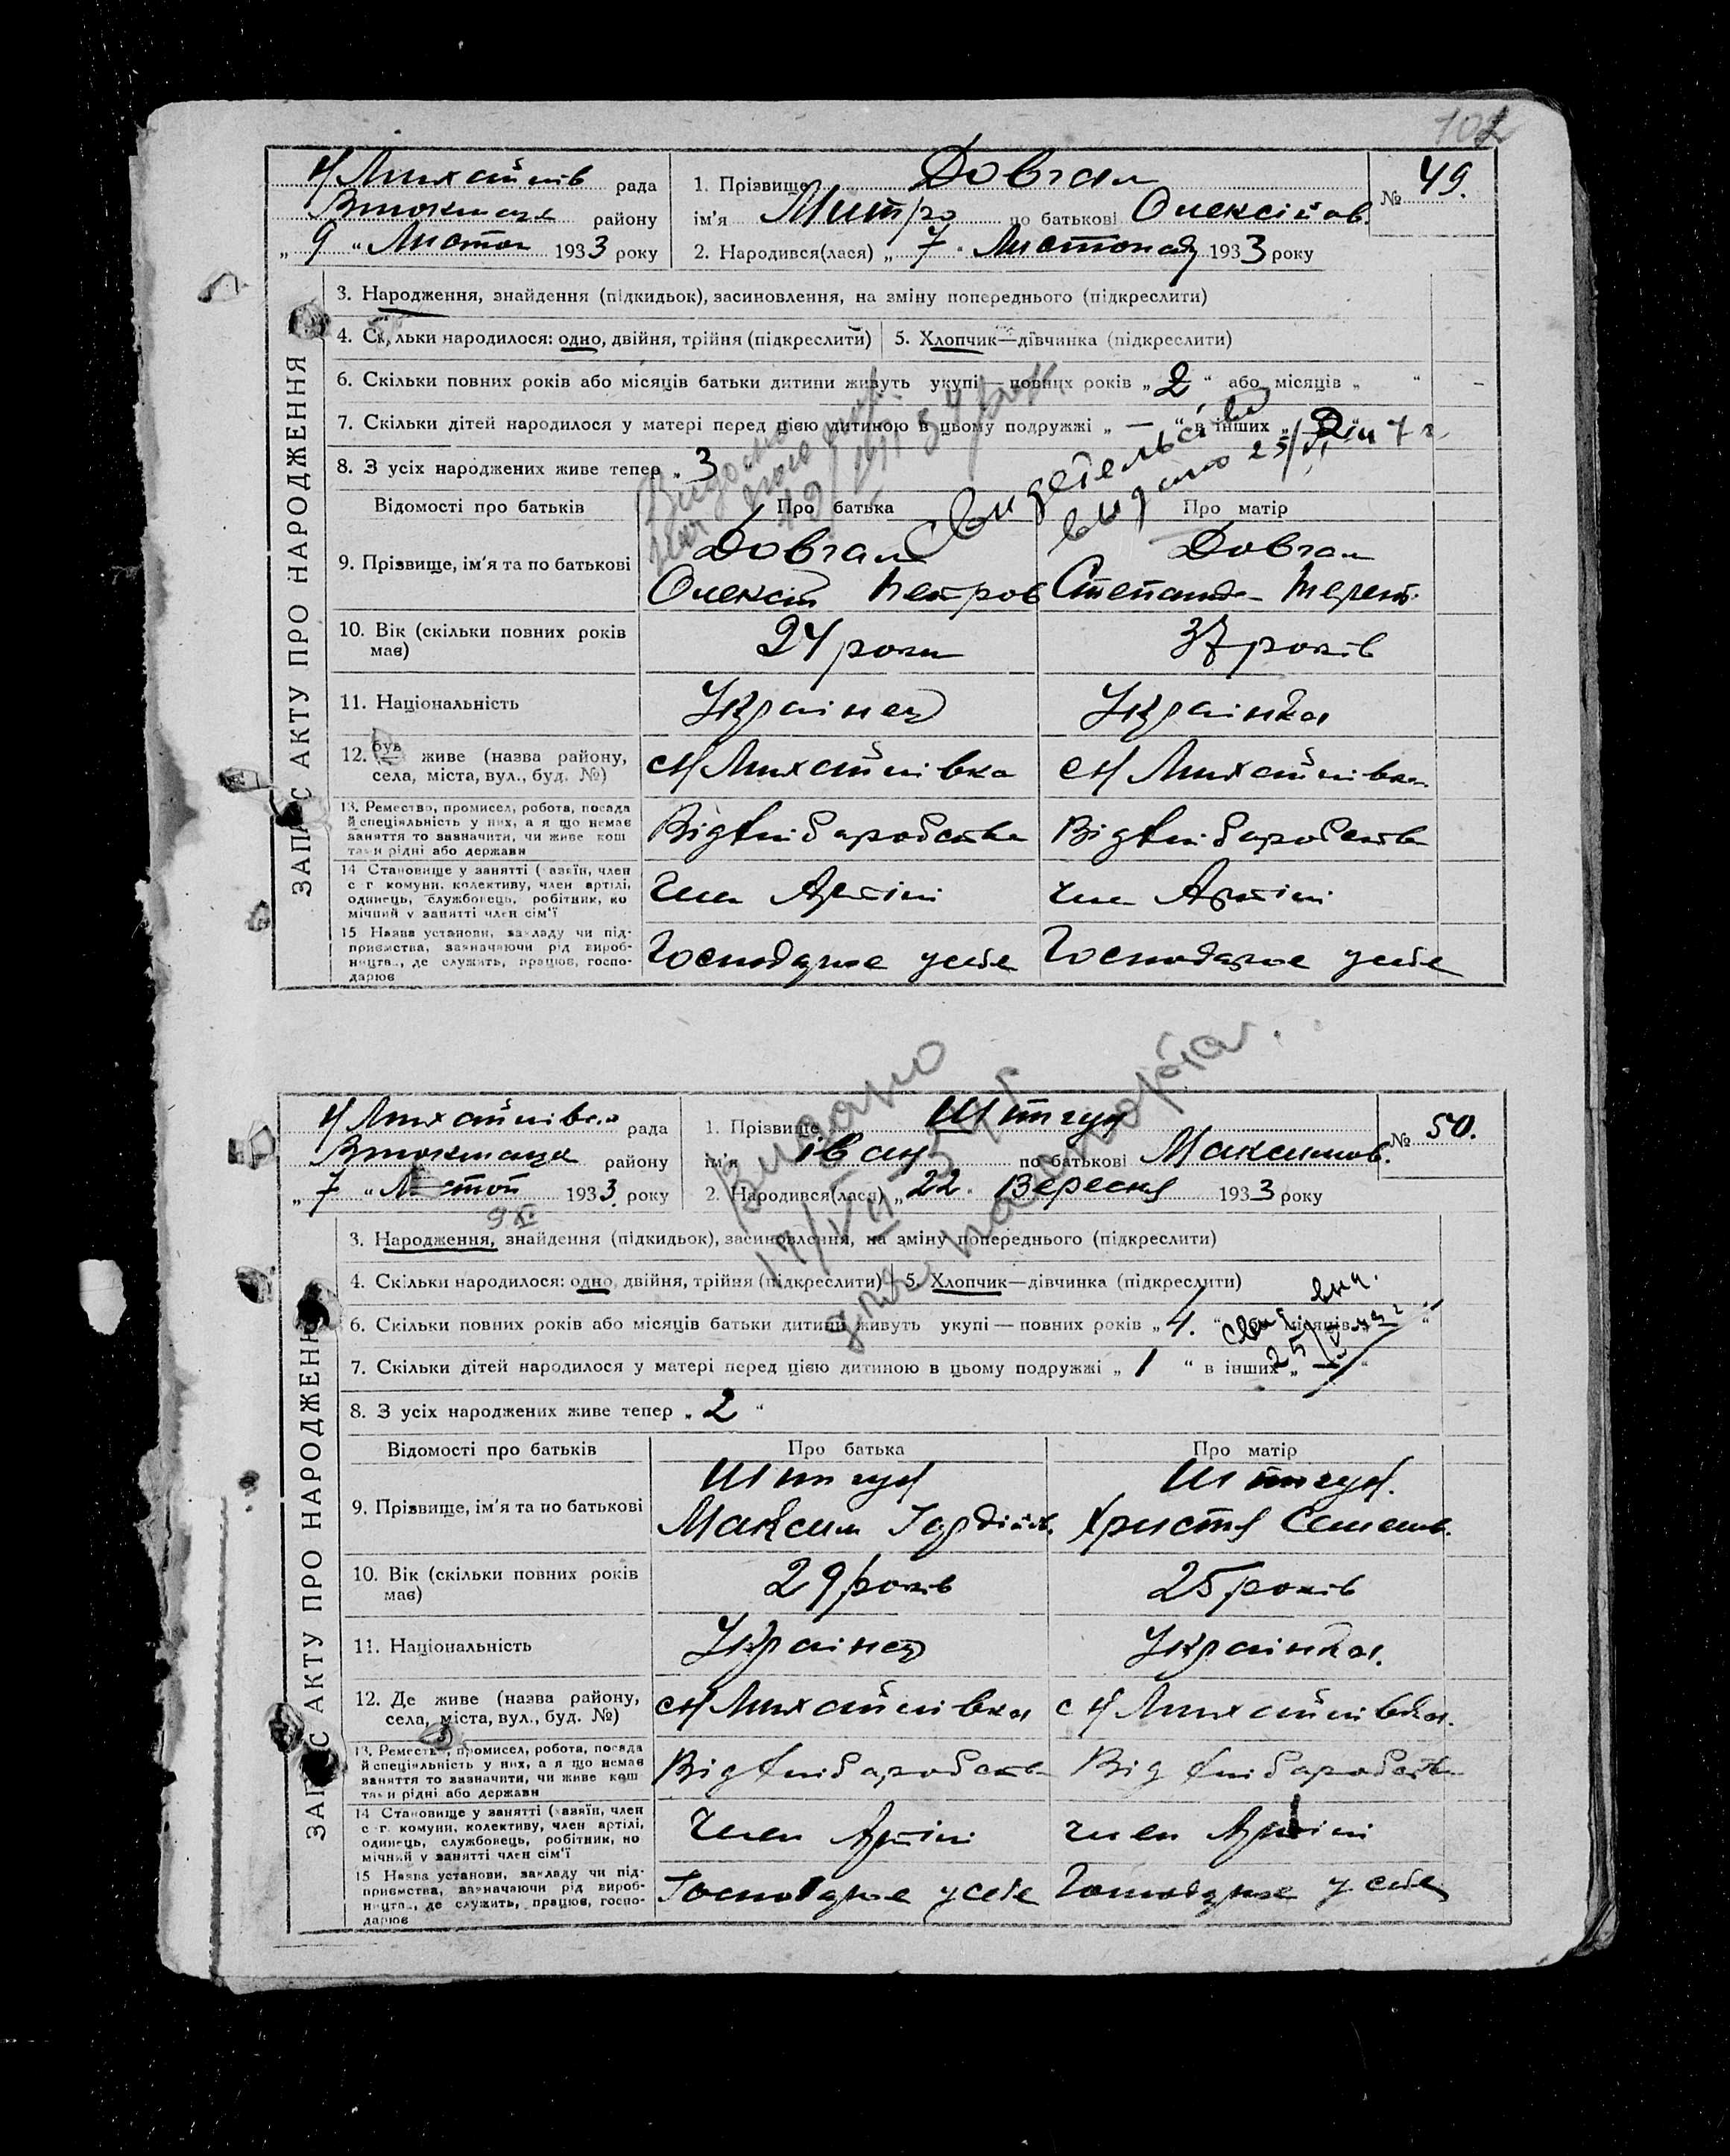 102
Н/Михайлів рада
1. Прізвище Довгал
№ 49.
В токмаць району
ім'я Митро по батькові Олексійов.
„ 9 " Листоп 1933 року
2. Народився(лася) „ 7 " Листопад 1933 року
ЗАПИС АКТУ ПРО НАРОДЖЕННЯ
3. Народження, знайдення (підкидьок), засиновлення, на зміну попереднього (підкреслити)
4. Скільки народилося: одно, двійня, трійня (підкреслити)
5. Хлопчик—дівчинка (підкреслити)
6. Скільки повних років або місяців батьки дитини живуть укупі — повних років „ 2 " або місяців „ "
7. Скільки дітей народилося у матері перед цією дитиною в цьому подружжі „ — " в інших „ 2 "
8. З усіх народжених живе тепер „ 3
Видано
Свидетельство
видано 25/VI 47 г
Відомості про батьків
Про батька
Про матір
9. Прізвище, ім'я та по батькові
Довгал
Олексій Петров
Довгал
Степанида Терент.
10. Вік (скільки повних років має)
24 роки
37 років
11. Національність
Українец
Українка
12. був живе (назва району, села, міста, вул., буд. №)
с Н/Михайлівка
с Н/Михайлівка
13. Ремество, промисел, робота, посада
й спеціяльність у них, а я що немає
заняття то зазначити, чи живе кош
там рідні або держави
Від хліборобства
Від хліборобства
14 Становище у занятті (хазяїн, член
с г. комуни, колективу, член артілі,
одинець, службовець, робітник, ко
мічний у занятті член сім'ї
Член Артілі
член Артілі
15 Назва установи, закладу чи під-
приємства, зазначаючи рід вироб-
ництва, де служить, працює, госпо-
дарює
Господарює у себе
Господарює у себе
Н/Михайлівка рада
1. Прізвище Штигун
№ 50.
Втокмаць району
ім'я іван по батькові Максимов.
„ 7 " Листоп 1933 року
2. Народився(лася) „ 22. Вересня 1933 року
9 XI
Видано
17/VII 51 г
для паспорта.
ЗАПИС АКТУ ПРО НАРОДЖЕННЯ
3. Народження, знайдення (підкидьок), засиновлення, на зміну попереднього (підкреслити)
4. Скільки народилося: одно, двійня, трійня (підкреслити)
5. Хлопчик—дівчинка (підкреслити)
6. Скільки повних років або місяців батьки дитини живуть укупі — повних років „ 4. " або місяців „ "
7. Скільки дітей народилося у матері перед цією дитиною в цьому подружжі „ 1 " в інших „ — "
8. З усіх народжених живе тепер „ 2 "
Відомості про батьків
Про батька
Про матір
9. Прізвище, ім'я та по батькові
Штигун
Максим Гордійов.
Штигун.
Христя Семенов.
10. Вік (скільки повних років має)
29 років
25 років
11. Національність
Українец
Українка.
12. Де живе (назва району, села, міста, вул., буд. №)
с Н/Михайлівка
с Н/Михайлівка.
13. Ремество, промисел, робота, посада
й спеціяльність у них, а я що немає
заняття то зазначити, чи живе кош
там рідні або держави
Від хліборобств
Від хліборобства
14 Становище у занятті (хазяїн, член
с г. комуни, колективу, член артілі,
одинець, службовець, робітник, ко
мічний у занятті член сім'ї
Член Артілі
член Артілі
15 Назва установи, закладу чи під-
приємства, зазначаючи рід вироб-
ництва, де служить, працює, госпо-
дарює
Господарює у себе
Господарює у себе